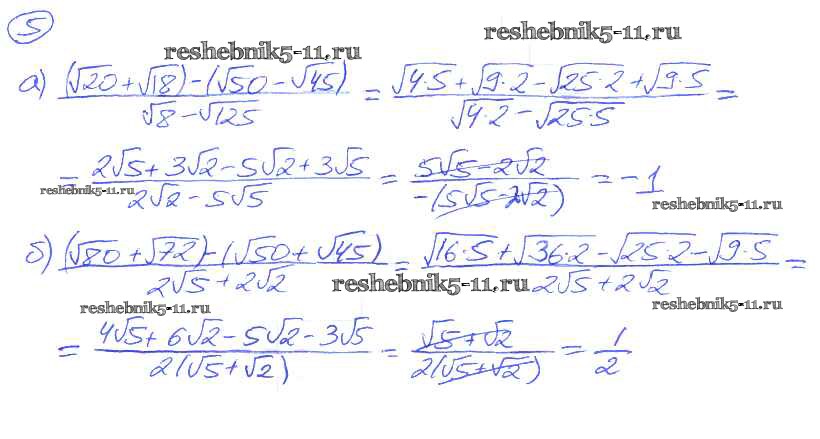 5
reshebnik5-11.ru
reshebnik5-11.ru
а) ((√20 + √18) - (√50 - √45)) / (√8 - √125) = (√4·5 + √9·2 - √25·2 + √9·5) / (√4·2 - √25·5) =
= (2√5 + 3√2 - 5√2 + 3√5) / (2√2 - 5√5) = (5√5 - 2√2) / (-(5√5 - 2√2)) = -1
reshebnik5-11.ru
reshebnik5-11.ru
б) ((√80 + √72) - (√50 + √45)) / (2√5 + 2√2) = (√16·5 + √36·2 - √25·2 - √9·5) / (2√5 + 2√2) =
reshebnik5-11.ru
reshebnik5-11.ru
reshebnik5-11.ru
= (4√5 + 6√2 - 5√2 - 3√5) / (2(√5 + √2)) = (√5 + √2) / (2(√5 + √2)) = 1/2